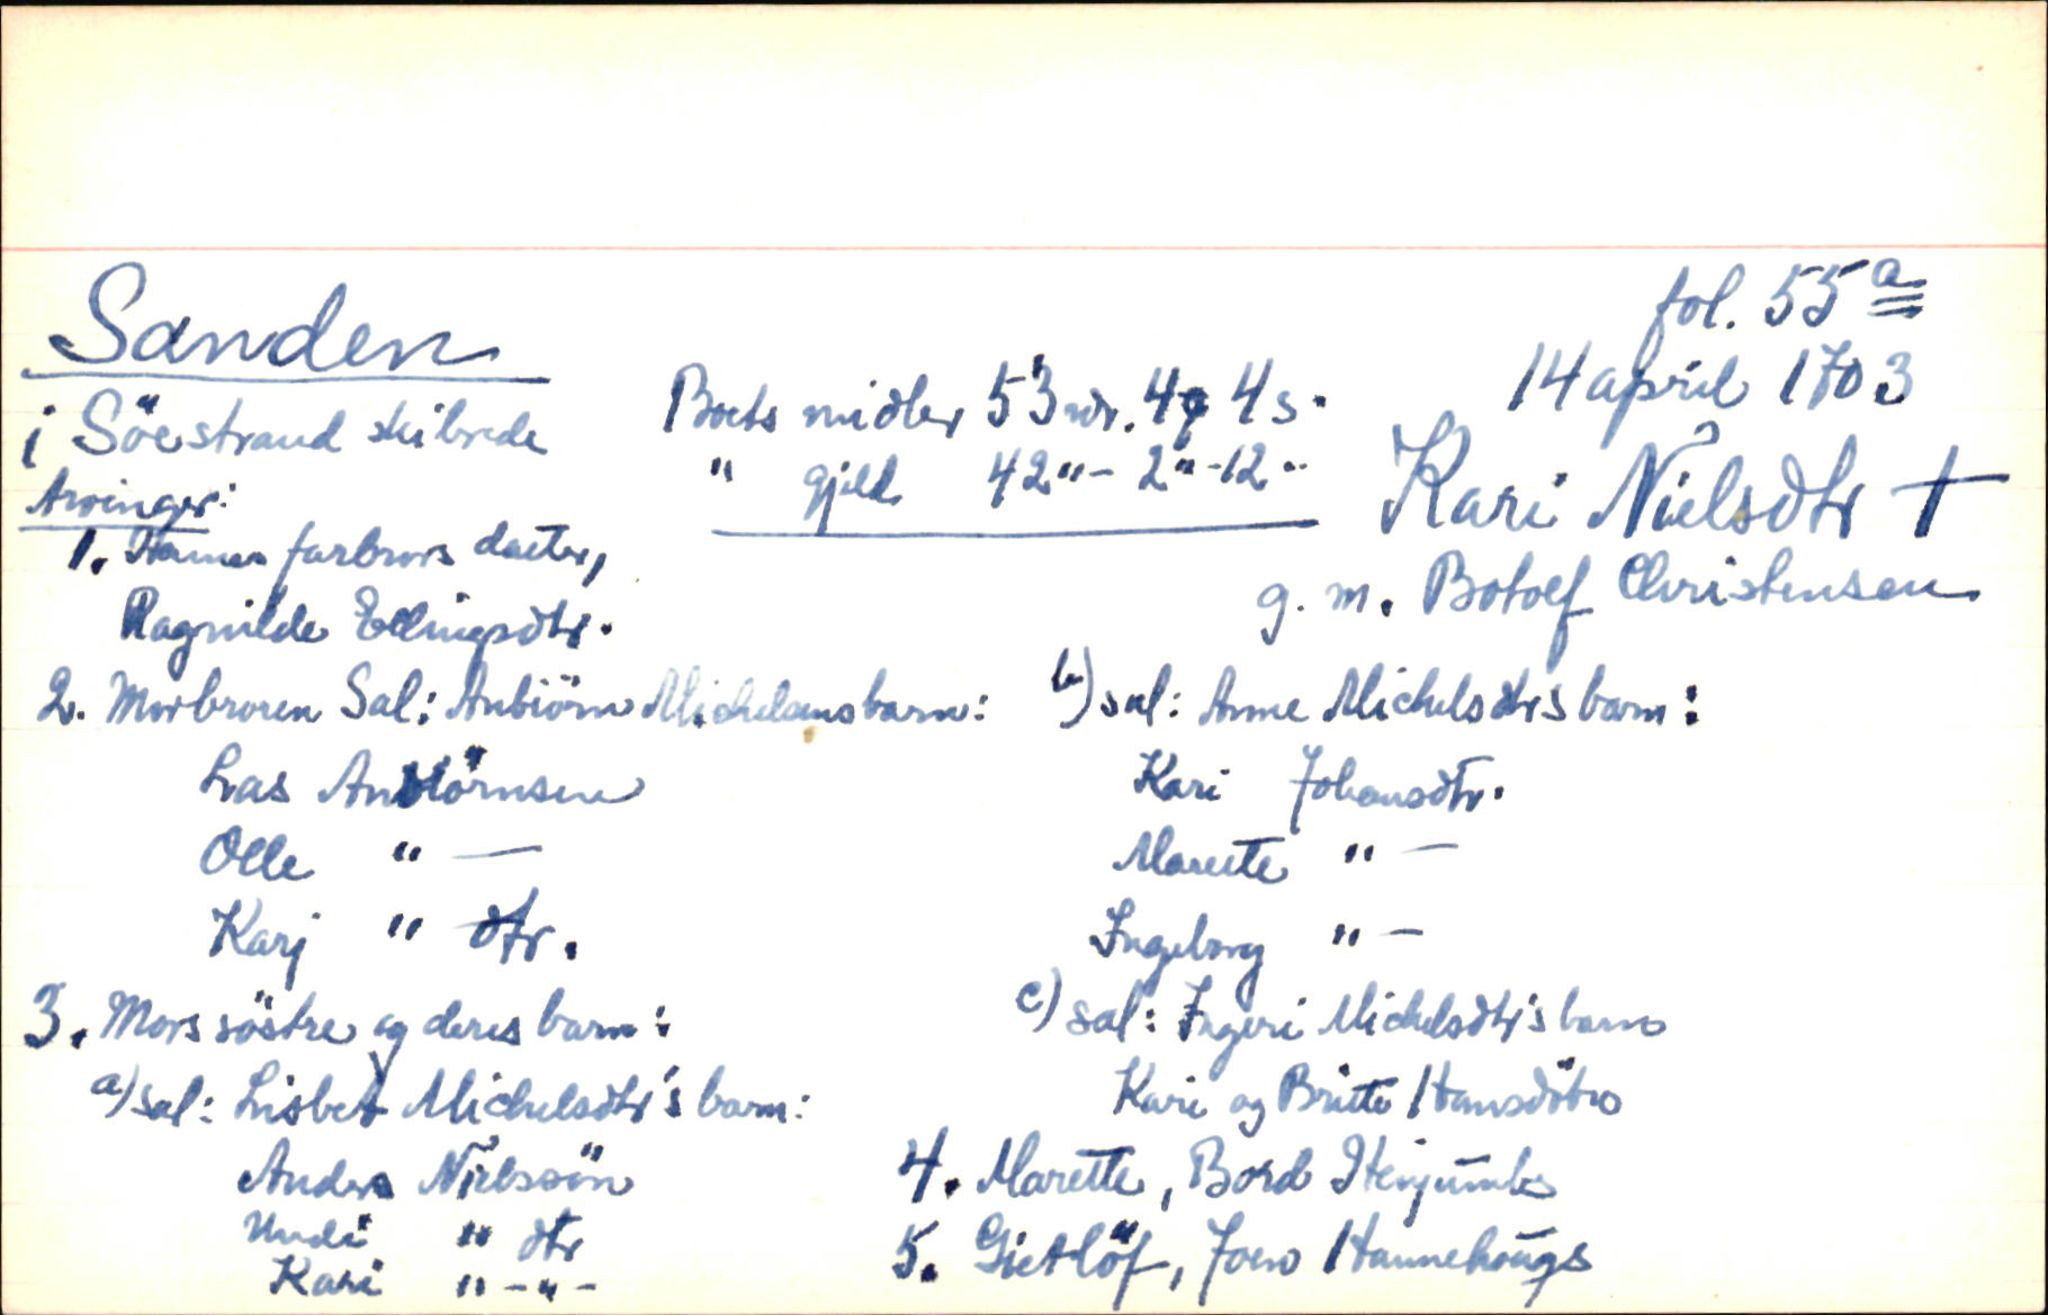 fol. 55a
Sanden
14 april 1703
i Söestrand skibrede
Boets midler 53 rdr. 4q 4s.
" gjeld 42 " - 2 " - 12 "
Kari Nielsdtr †
g. m. Botolf Christensen
Arvinger:
1. Hannes farbrors daater,
Ragnilde Ellingsdtr.
2. Morbroren Sal: Anbiörn Michelsens barn:
Las Anbiörnsen
Olle " —
Karj " dtr.
3. Mors söstre og deres barn:
a) sal: Lisbet Michelsdtr's barn:
Anders Nielssön
Undi " dtr
Kari " - " -
b) sal: Anne Michelsdtrs barn:
Kari Johansdtr.
Marette " —
Ingeborg " —
c) sal: Ingeri Michelsdtr's barn
Kari og Britte Hansdötre
4. Marette, Bord Henjumbs
5. Gietlöf, Joen Hannehougs